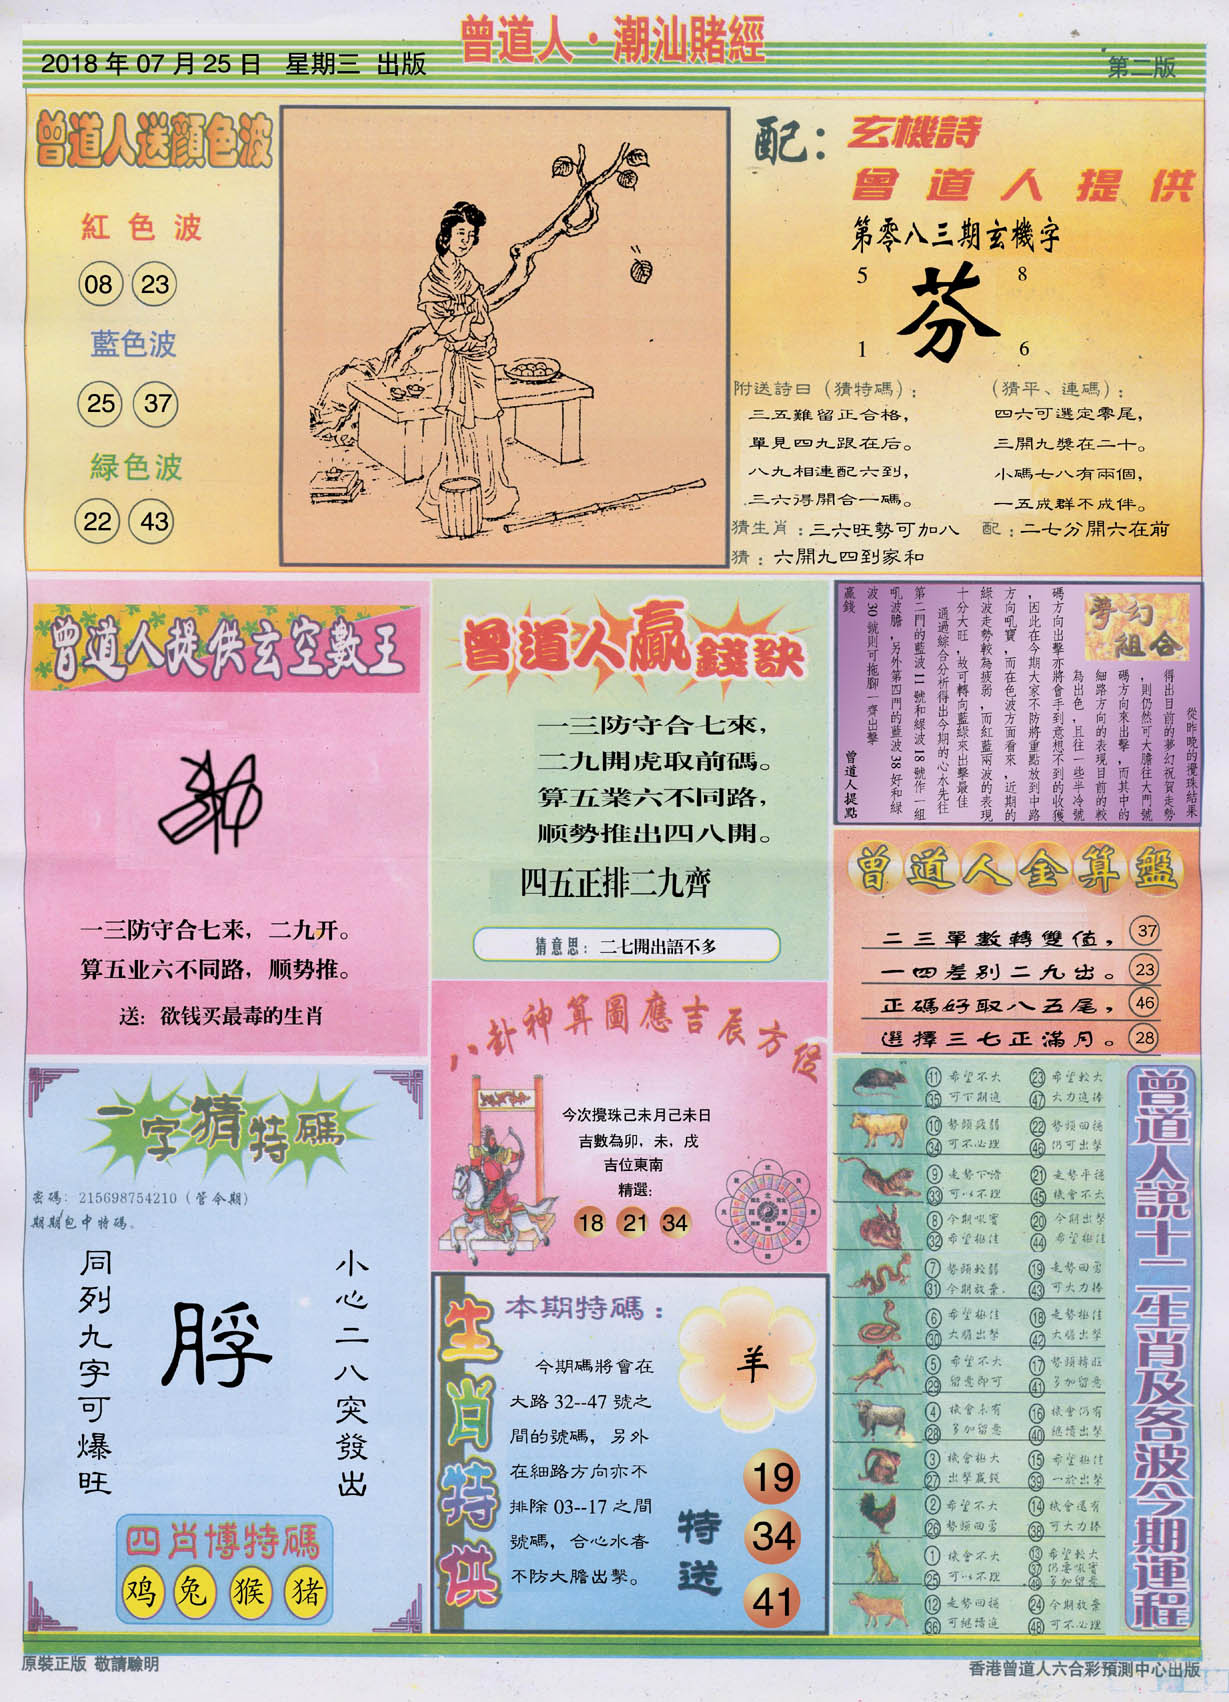 曾道人·潮汕賭經
2018 年 07 月 25 日 星期三 出版
第二版
曾道人送顏色波
紅色波
08 23
藍色波
25 37
緑色波
22 43
配：玄機詩
曾道人提供
第零八三期玄機字
5 8
芬
1 6
附送詩曰（猜特碼）：
三五難留正合格，
單見四九跟在后。
八九相連配六到，
三六得開合一碼。
（猜平、連碼）：
四六可選定零尾，
三開九獎在二十。
小碼七八有兩個，
一五成群不成伴。
猜生肖：三六旺勢可加八
配：二七分開六在前
猜：六開九四到家和
曾道人提供玄空數王
一三防守合七来，二九开。
算五业六不同路，顺势推。
送：欲钱买最毒的生肖
曾道人贏錢訣
一三防守合七來，
二九開虎取前碼。
算五業六不同路，
顺勢推出四八開。
四五正排二九齊
猜意思：二七開出語不多
夢幻
組合
從昨晚的攪珠結果
得出目前的夢幻祝賀走勢
，則仍然可大膽往大門號
碼方向來出擊，而其中的
細路方向的表現目前的較
為出色，且往一些半冷號
碼方向出擊亦將會手到意想不到的收獲
，因此在今期大家不防將重點放到中路
方向吼寶，而在色波方面看來，近期的
綠波走勢較為疲弱，而紅藍兩波的表現
十分大旺，故可轉向藍綠來出擊最佳
通過綜合分析得出今期的心水先往
第二門的藍波 11 號和綠波 18 號作一組
吼波膽，另外第四門的藍波 38 好和綠
波 30 號則可拖腳一齊出擊
贏錢
曾道人提點
曾道人金算盤
二三單數轉雙值， 37
一四差别二九出。 23
正碼好取八五尾， 46
選擇三七正滿月。 28
八卦神算圖應吉辰方位
今次攪珠己未月己未日
吉數為卯，未，戌
吉位東南
精選：
18 21 34
一字猜特碼
密碼：215698754210（管令期）
期期包中特碼。
小心二八突發出
脬
同列九字可爆旺
四肖博特碼
鸡 兔 猴 猪
生肖特供
本期特碼：
羊
今期碼將會在
大路 32--47 號之
間的號碼，另外
在細路方向亦不
排除 03--17 之間
號碼，合心水者
不防大膽出擊。
特送
19
34
41
曾道人説十二生肖及各波今期運程
11 希望不大 23 希望較大
35 可下期進 47 大力進捧
10 勢頭疲弱 22 勢頭回穩
34 可不必理 46 仍可出擊
9 走勢下滑 21 走勢平穩
33 可以不理 45 機會不大
8 今期吼寶 20 今期出擊
32 希望極佳 44 希望極佳
7 勢頭較弱 19 走勢回勇
31 今期放棄 43 可大力捧
6 希望極佳 18 走勢極佳
30 大膽出擊 42 大膽出擊
5 希望不大 17 勢頭轉旺
29 留意即可 41 多加留意
4 機會未有 16 機會仍有
28 多加留意 40 繼續出擊
3 機會極大 15 希望極佳
27 出擊贏錢 39 一於出擊
2 希望不大 14 機會還有
26 勢頭回勇 38 可大力捧
1 機會不大 13 希望較大
25 可以不理 37 仍要吼實
49 多加留意
12 走勢回穩 24 今期放棄
36 可繼續進 48 可不必理
原裝正版 敬請驗明
香港曾道人六合彩預測中心出版